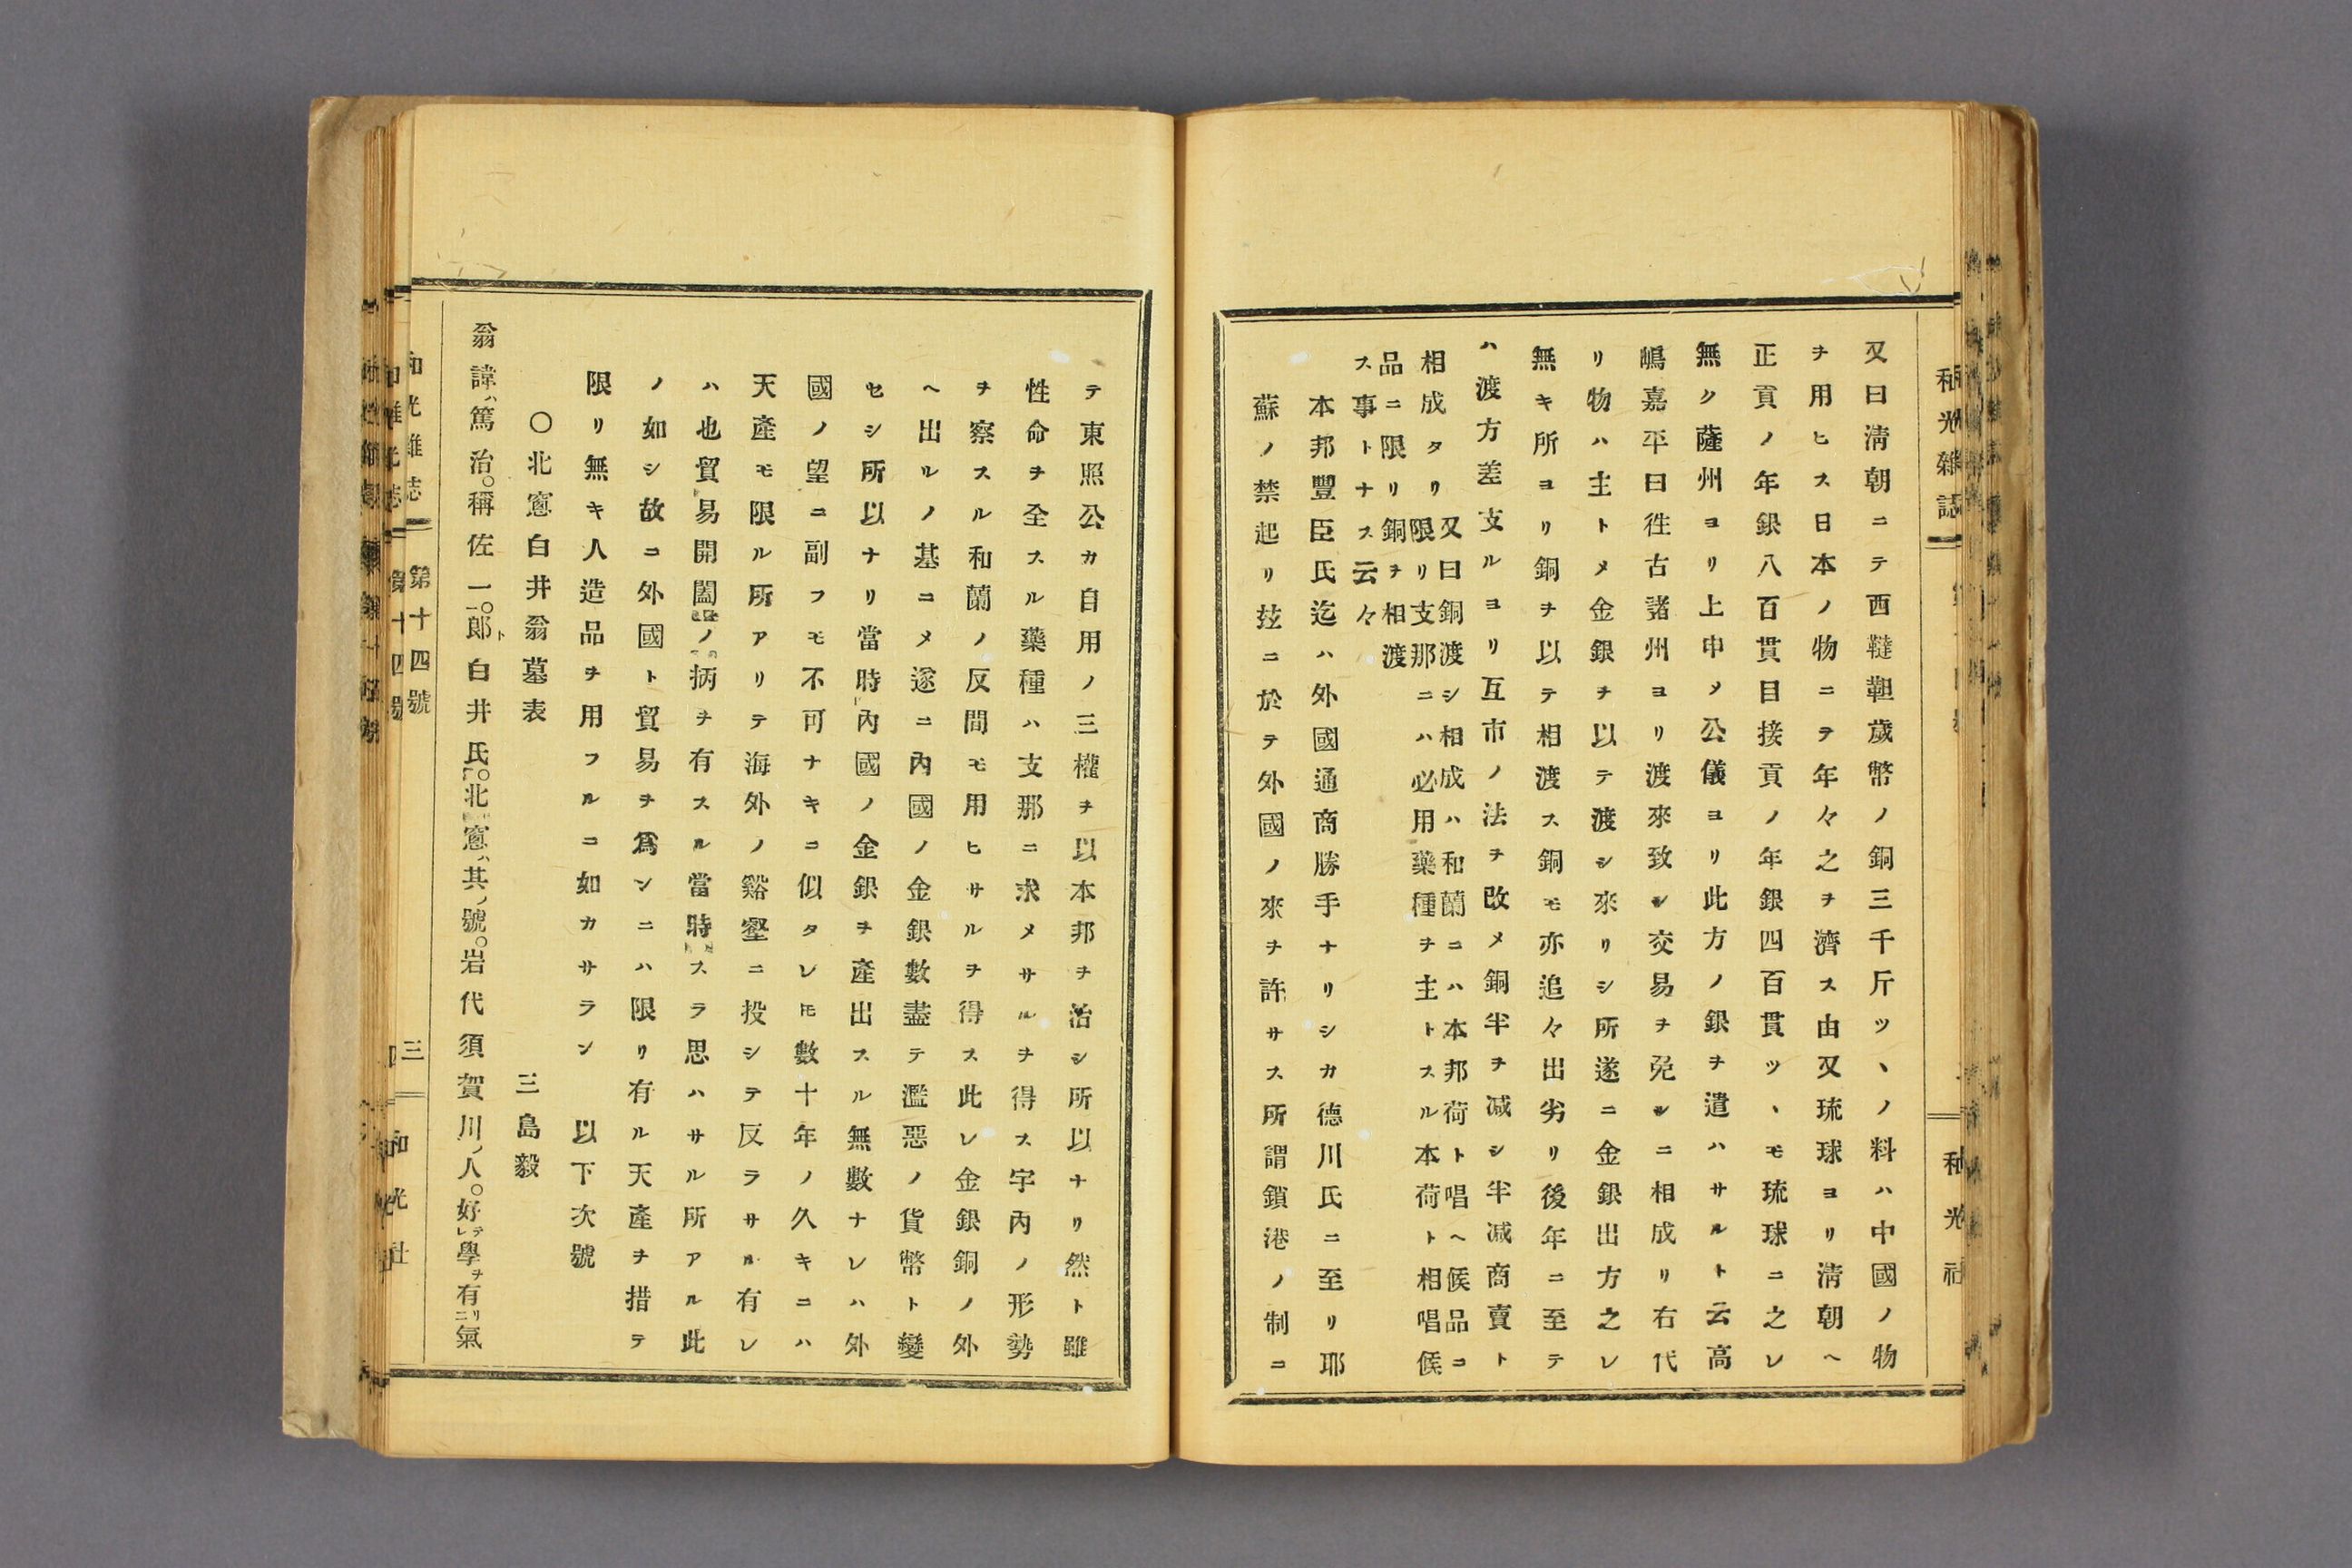 又曰淸朝ニテ西韃靼歲幣ノ銅三千斤ツヽノ料ハ中國ノ物
ヲ用ヒス日本ノ物ニヲ年々之ヲ濟ス由又琉球ヨリ淸朝ヘ
正貢ノ年銀八百貫目接貢ノ年銀四百貫ツヽモ琉球ニ之レ
無ク薩州ヨリ上申メ公儀ヨリ此方ノ銀ヲ遣ハサルト云高
嶋嘉平曰徃古諸州ヨリ渡來致シ交易ヲ免シニ相成リ右代
リ物ハ主トメ金銀ヲ以テ渡シ來リシ所遂ニ金銀出方之レ
無キ所ヨリ銅ヲ以テ相渡ス銅モ亦追々出劣リ後年ニ至テ
ハ渡方差支ルヨリ互市ノ法ヲ改メ銅半ヲ减シ半减商賣ト
相成タリ
又曰銅渡シ相成ハ和蘭ニハ本邦荷ト唱ヘ候品ニ
限リ支那ニハ必用藥種ヲ主トスル本荷ト相唱候
品ニ限リ銅ヲ相渡
ス事トナス云々
本邦豐臣氏迄ハ外國通商勝手ナリシカ德川氏ニ至リ耶
蘇ノ禁起リ玆ニ於テ外國ノ來ヲ許サス所謂鎖港ノ制ニ
和光雜誌
和光社
テ東照公カ自用ノ三權ヲ以本邦ヲ治シ所以ナリ然ト雖
性命ヲ全スル藥種ハ支那ニ求メサルヲ得ス宇内ノ形勢
ヲ察スル和蘭ノ反間モ用ヒサルヲ得ス此レ金銀銅ノ外
ヘ出ルノ基ニメ遂ニ内國ノ金銀數盡テ濫惡ノ貨幣ト變
セシ所以ナリ當時内國ノ金銀ヲ產出スル無數ナレハ外
國ノ望ニ副フモ不可ナキニ似タレ𪜈數十年ノ久キニハ
天產モ限ル所アリテ海外ノ谿壑ニ投シテ反ラサル有レ
ハ也貿易開闔ノ柄ヲ有スル當時スラ思ハサル所アル此
ノ如シ故ニ外國ト貿易ヲ爲ンニハ限リ有ル天產ヲ措テ
限リ無キ人造品ヲ用フルニ如カサラン　以下次號
〇北窻白井翁墓表
三島毅
翁諱ハ篤治。稱佐一郎ト。白井氏。北窻ハ其ノ號。岩代須賀川ノ人。好テレ學ヲ有リ二氣
和光雜誌　第十四號　三　和光社